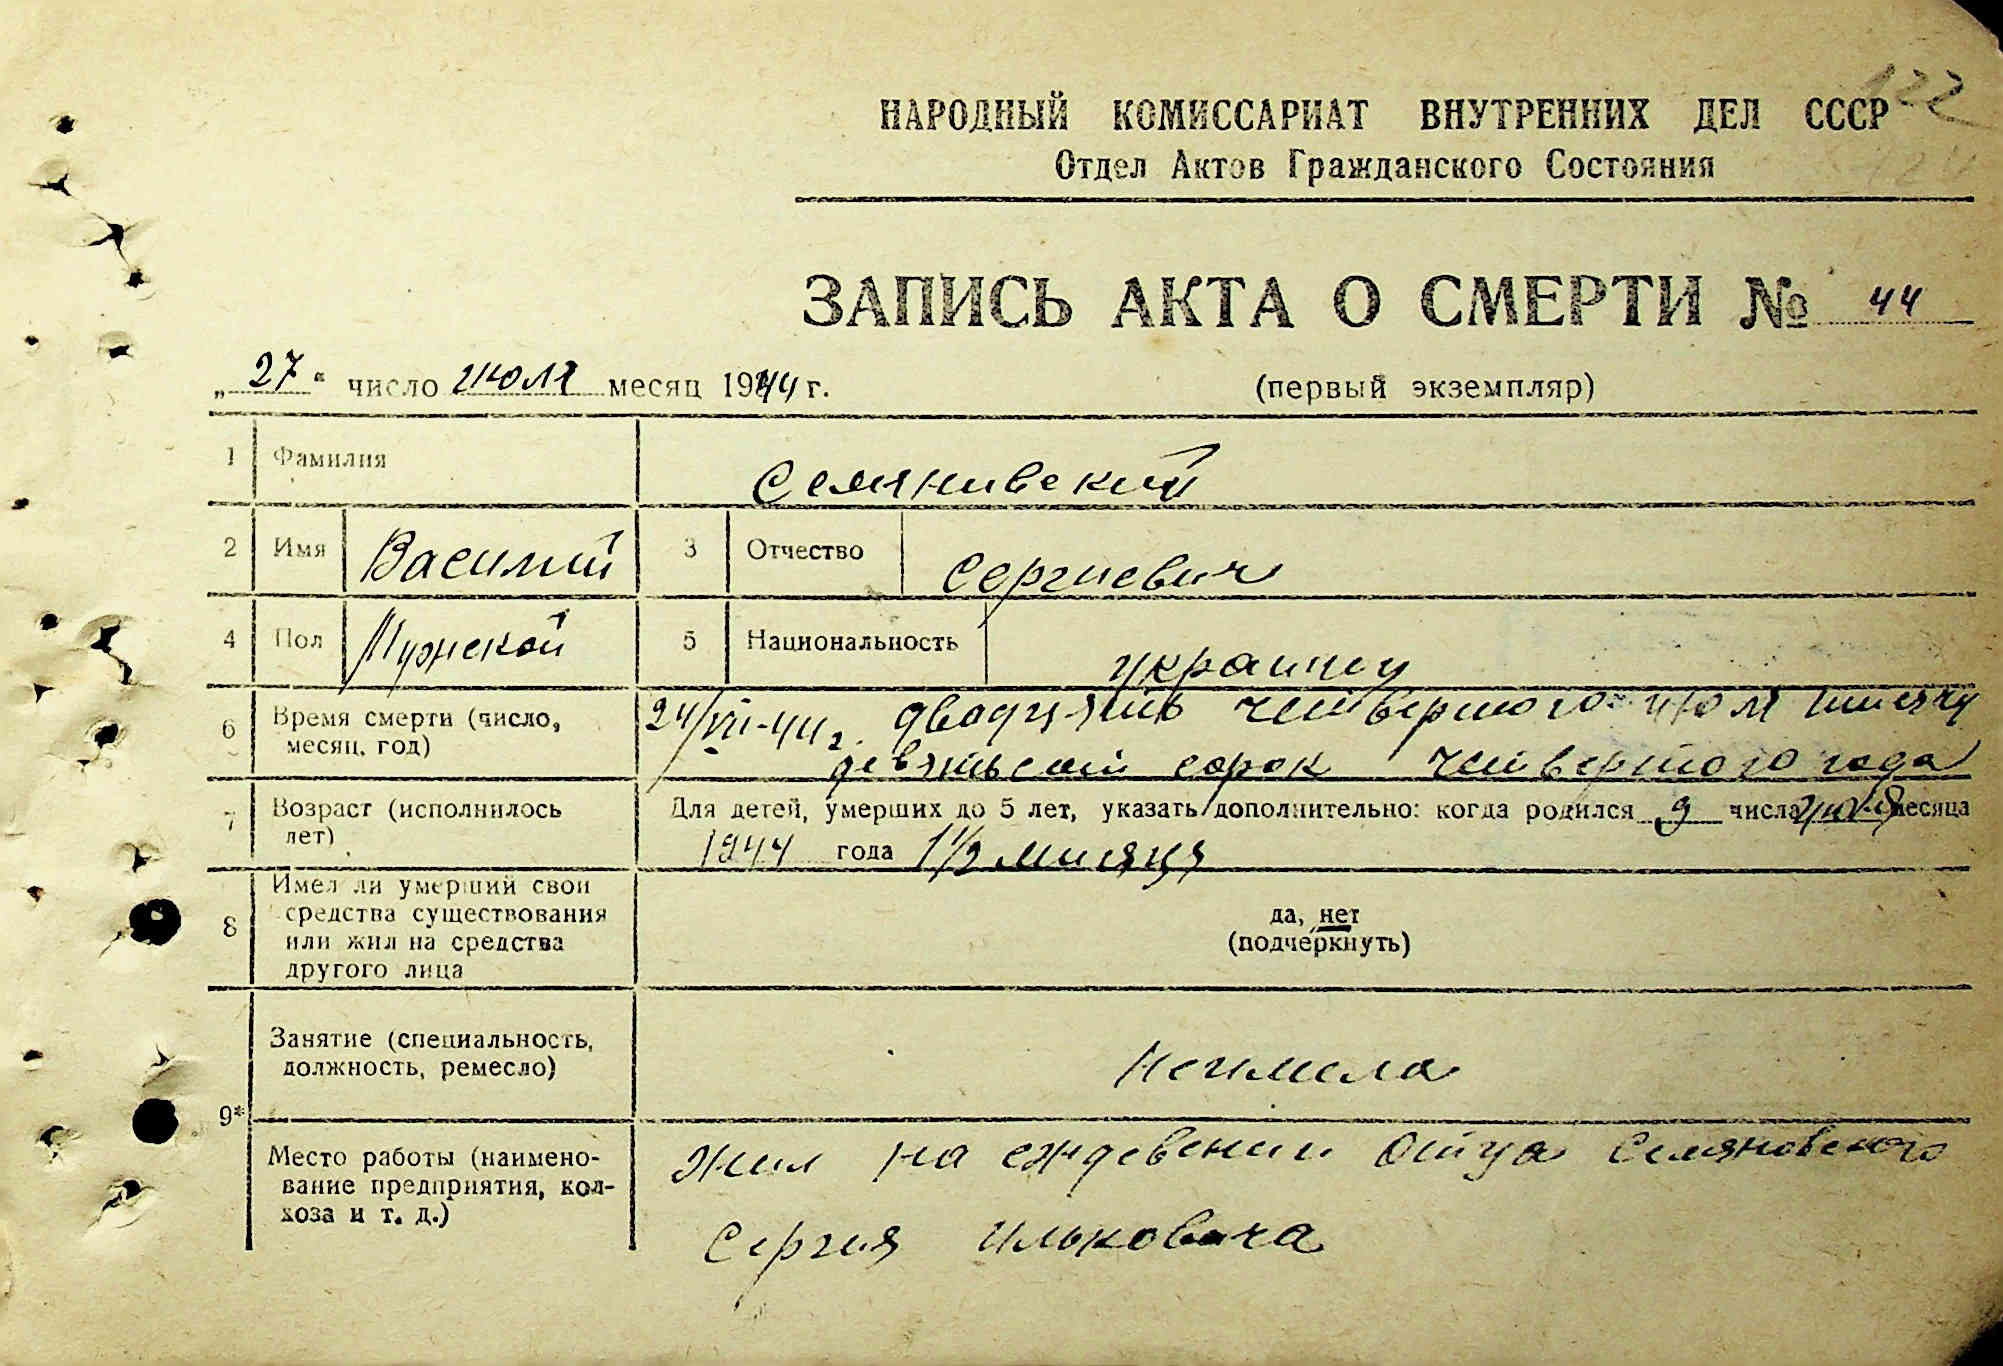 122
НАРОДНЫЙ КОМИССАРИАТ ВНУТРЕННИХ ДЕЛ СССР
Отдел Актов Гражданского Состояния
ЗАПИСЬ АКТА О СМЕРТИ № 44
„27“ число июля месяц 1944 г. (первый экземпляр)
1 Фамилия Семянивский
2 Имя Василий 3 Отчество Сергиевич
4 Пол Мужской 5 Национальность украинец
6 Время смерти (число, месяц, год) 24/VII-44 г. двадцять четвертого июля тисячу
девятьсот сорок четвертого года
7 Возраст (исполнилось лет) Для детей, умерших до 5 лет, указать дополнительно: когда родился 9 числа июля месяца
1944 года 1½ мисяця
8 Имел ли умерший свои
средства существования да, нет
или жил на средства (подчеркнуть)
другого лица
9* Занятие (специальность,
должность, ремесло) Неимела
Место работы (наимено- Жил на еждевении отца Семяновского
вание предприятия, кол-
хоза и т. д.) Сергия Ильковича